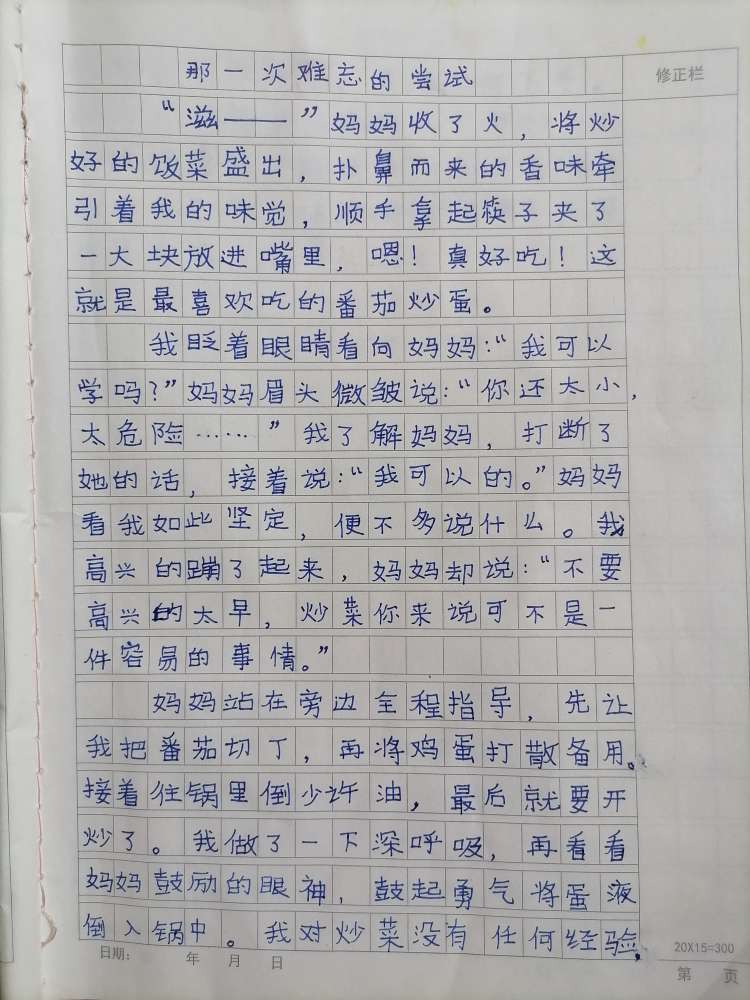 那一次难忘的尝试
修正栏
“滋——”妈妈收了火，将炒
好的饭菜盛出，扑鼻而来的香味牵
引着我的味觉，顺手拿起筷子夹了
一大块放进嘴里，嗯！真好吃！这
就是最喜欢吃的番茄炒蛋。
我眨着眼睛看向妈妈：“我可以
学吗？”妈妈眉头微皱说：“你还太小，
太危险……”我了解妈妈，打断了
她的话，接着说：“我可以的。”妈妈
看我如此坚定，便不多说什么。我
高兴的蹦了起来，妈妈却说：“不要
高兴的太早，炒菜你来说可不是一
件容易的事情。”
妈妈站在旁边全程指导，先让
我把番茄切丁，再将鸡蛋打散备用。
接着往锅里倒少许油，最后就要开
炒了。我做了一下深呼吸，再看看
妈妈鼓励的眼神，鼓起勇气将蛋液
倒入锅中。我对炒菜没有任何经验，
日期： 年 月 日
20X15=300
第 页